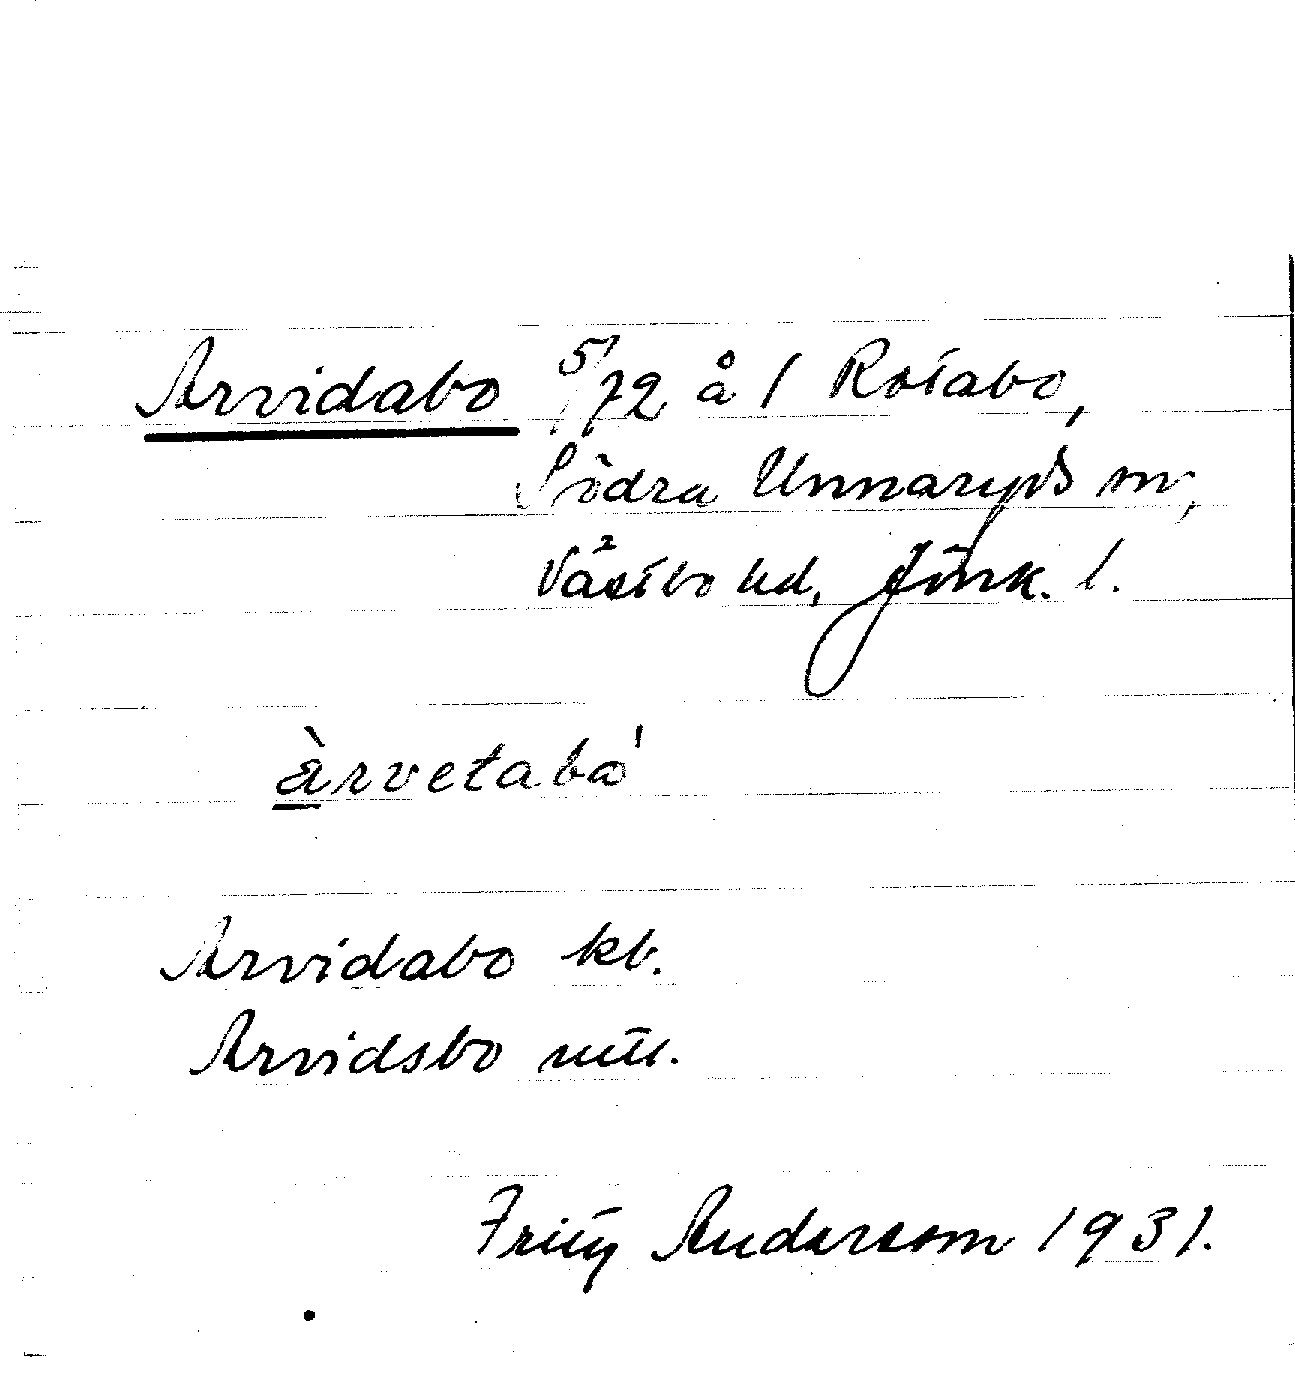 Arvidabo 5/72 å 1 Rotabo,
Södra Unnaryds sn,
Västbo hd, Jönk. l.
àrvetabo'
Arvidabo kb.
Arvidsbo
Andersson 1931.